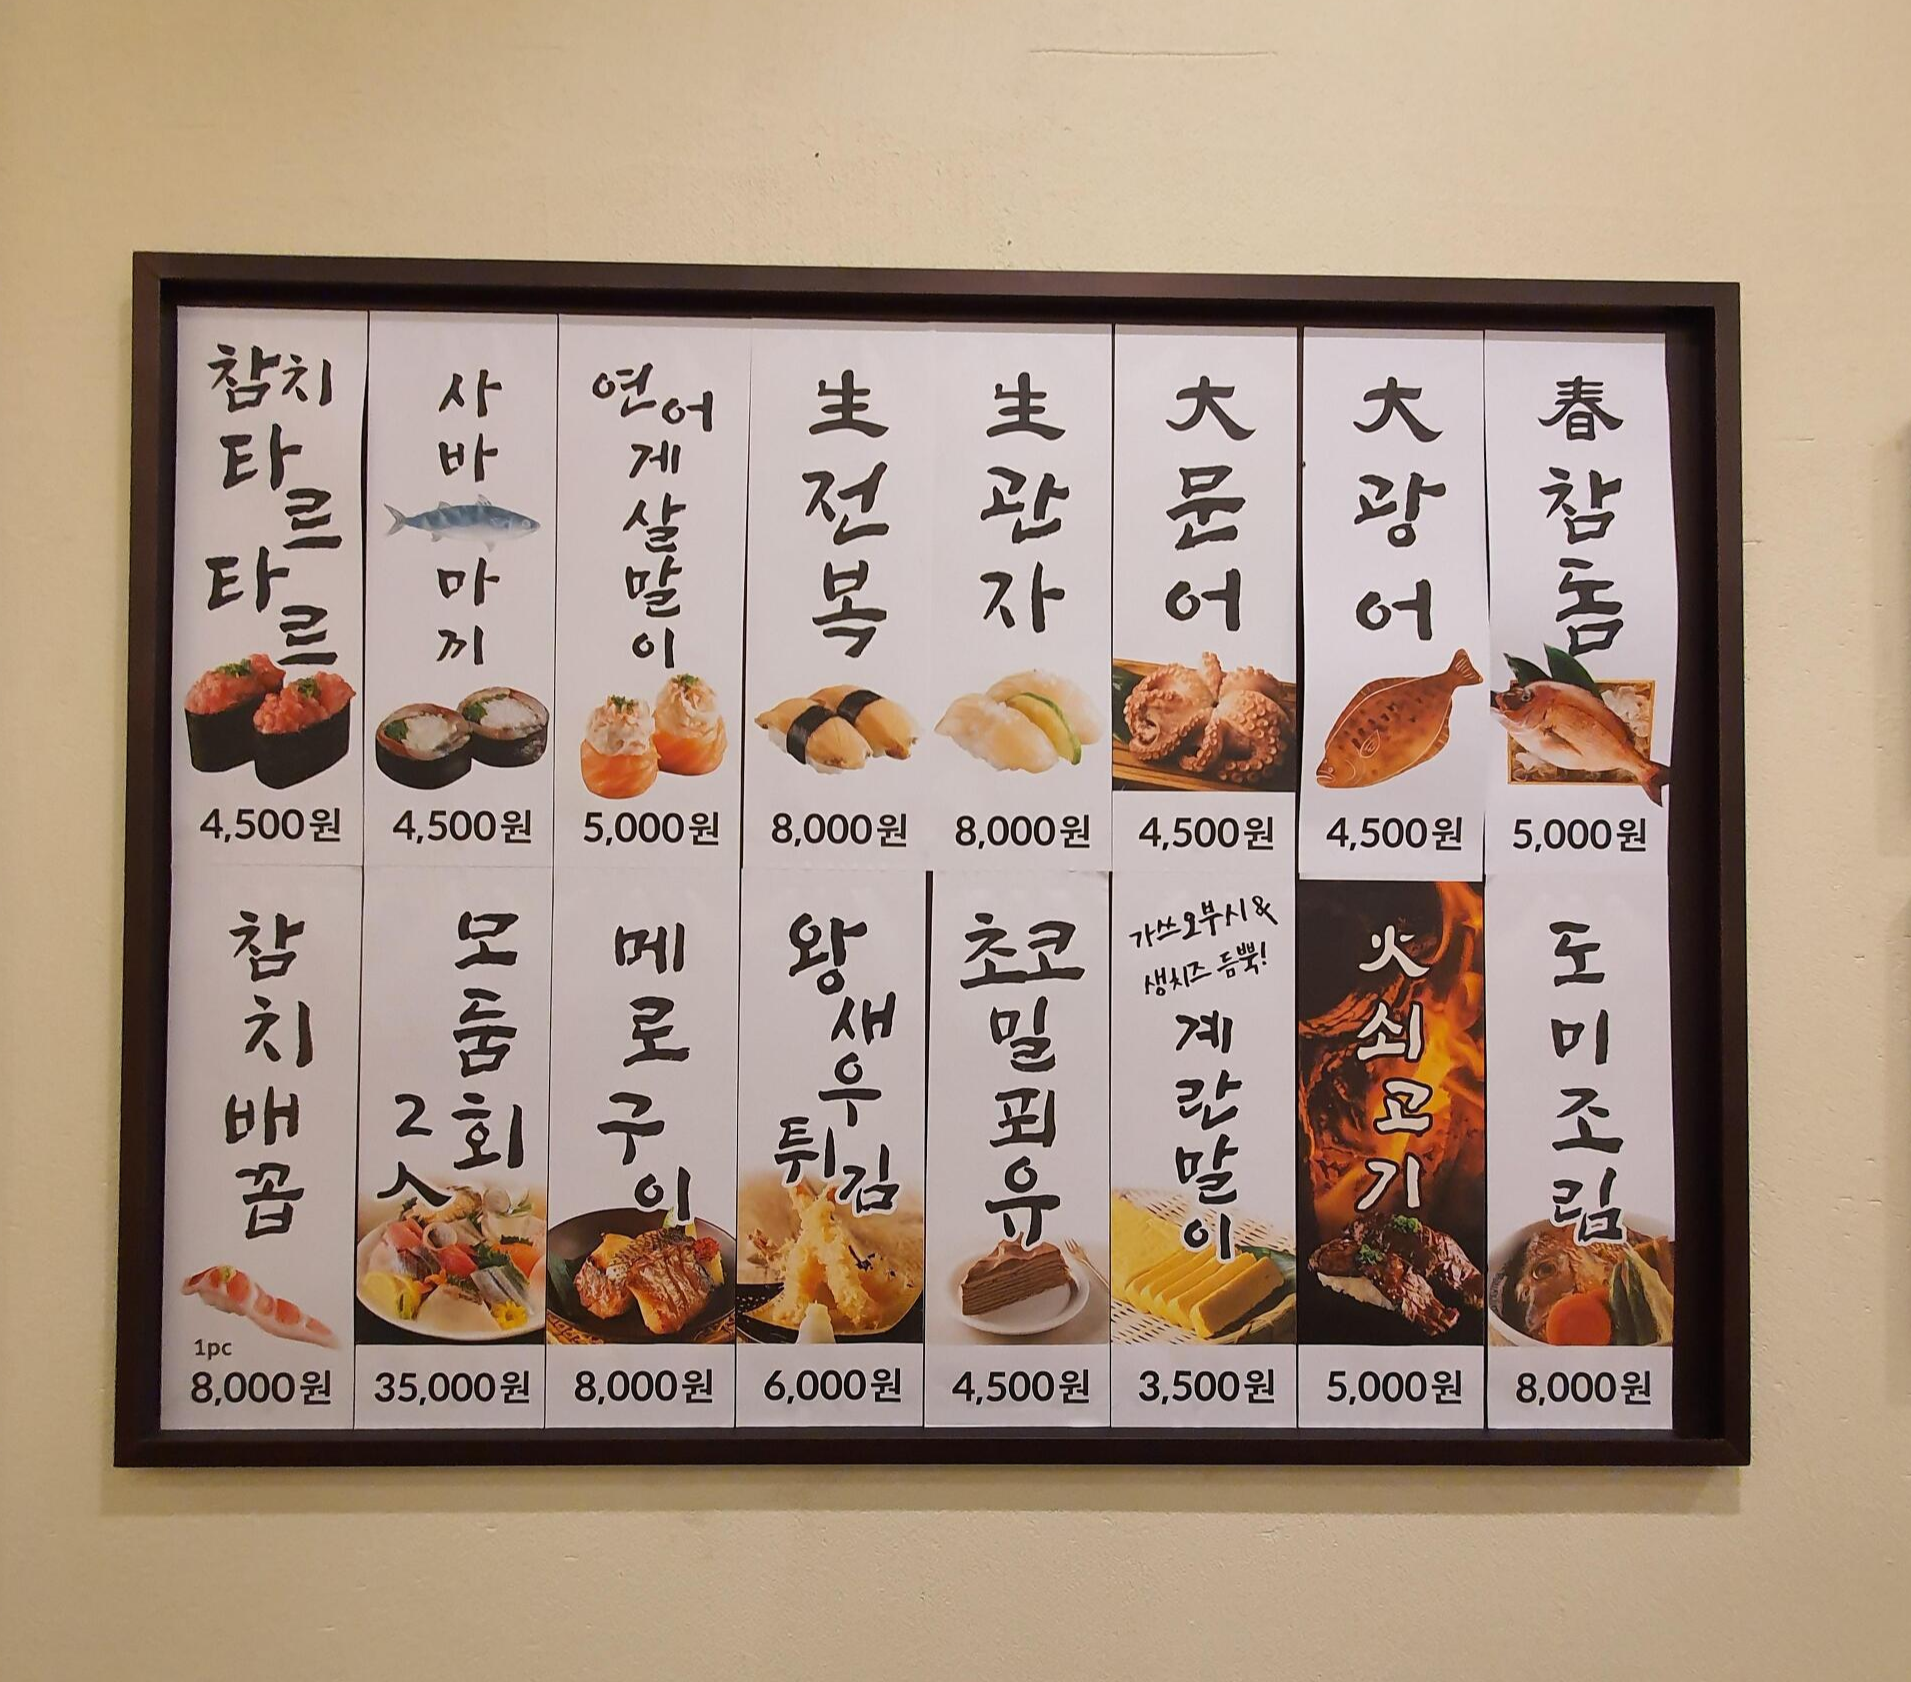 참치
타르
타르
4,500원
사바
마끼
4,500원
연어
게살말이
5,000원
生전복
8,000원
生관자
8,000원
大문어
4,500원
大광어
4,500원
春참돔
5,000원
참치배꼽
1pc
8,000원
모둠회
2人
35,000원
메로구이
8,000원
왕새우
튀김
6,000원
초코
밀푀유
4,500원
가쓰오부시&
생치즈 듬뿍!
계란말이
3,500원
火쇠고기
5,000원
도미조림
8,000원